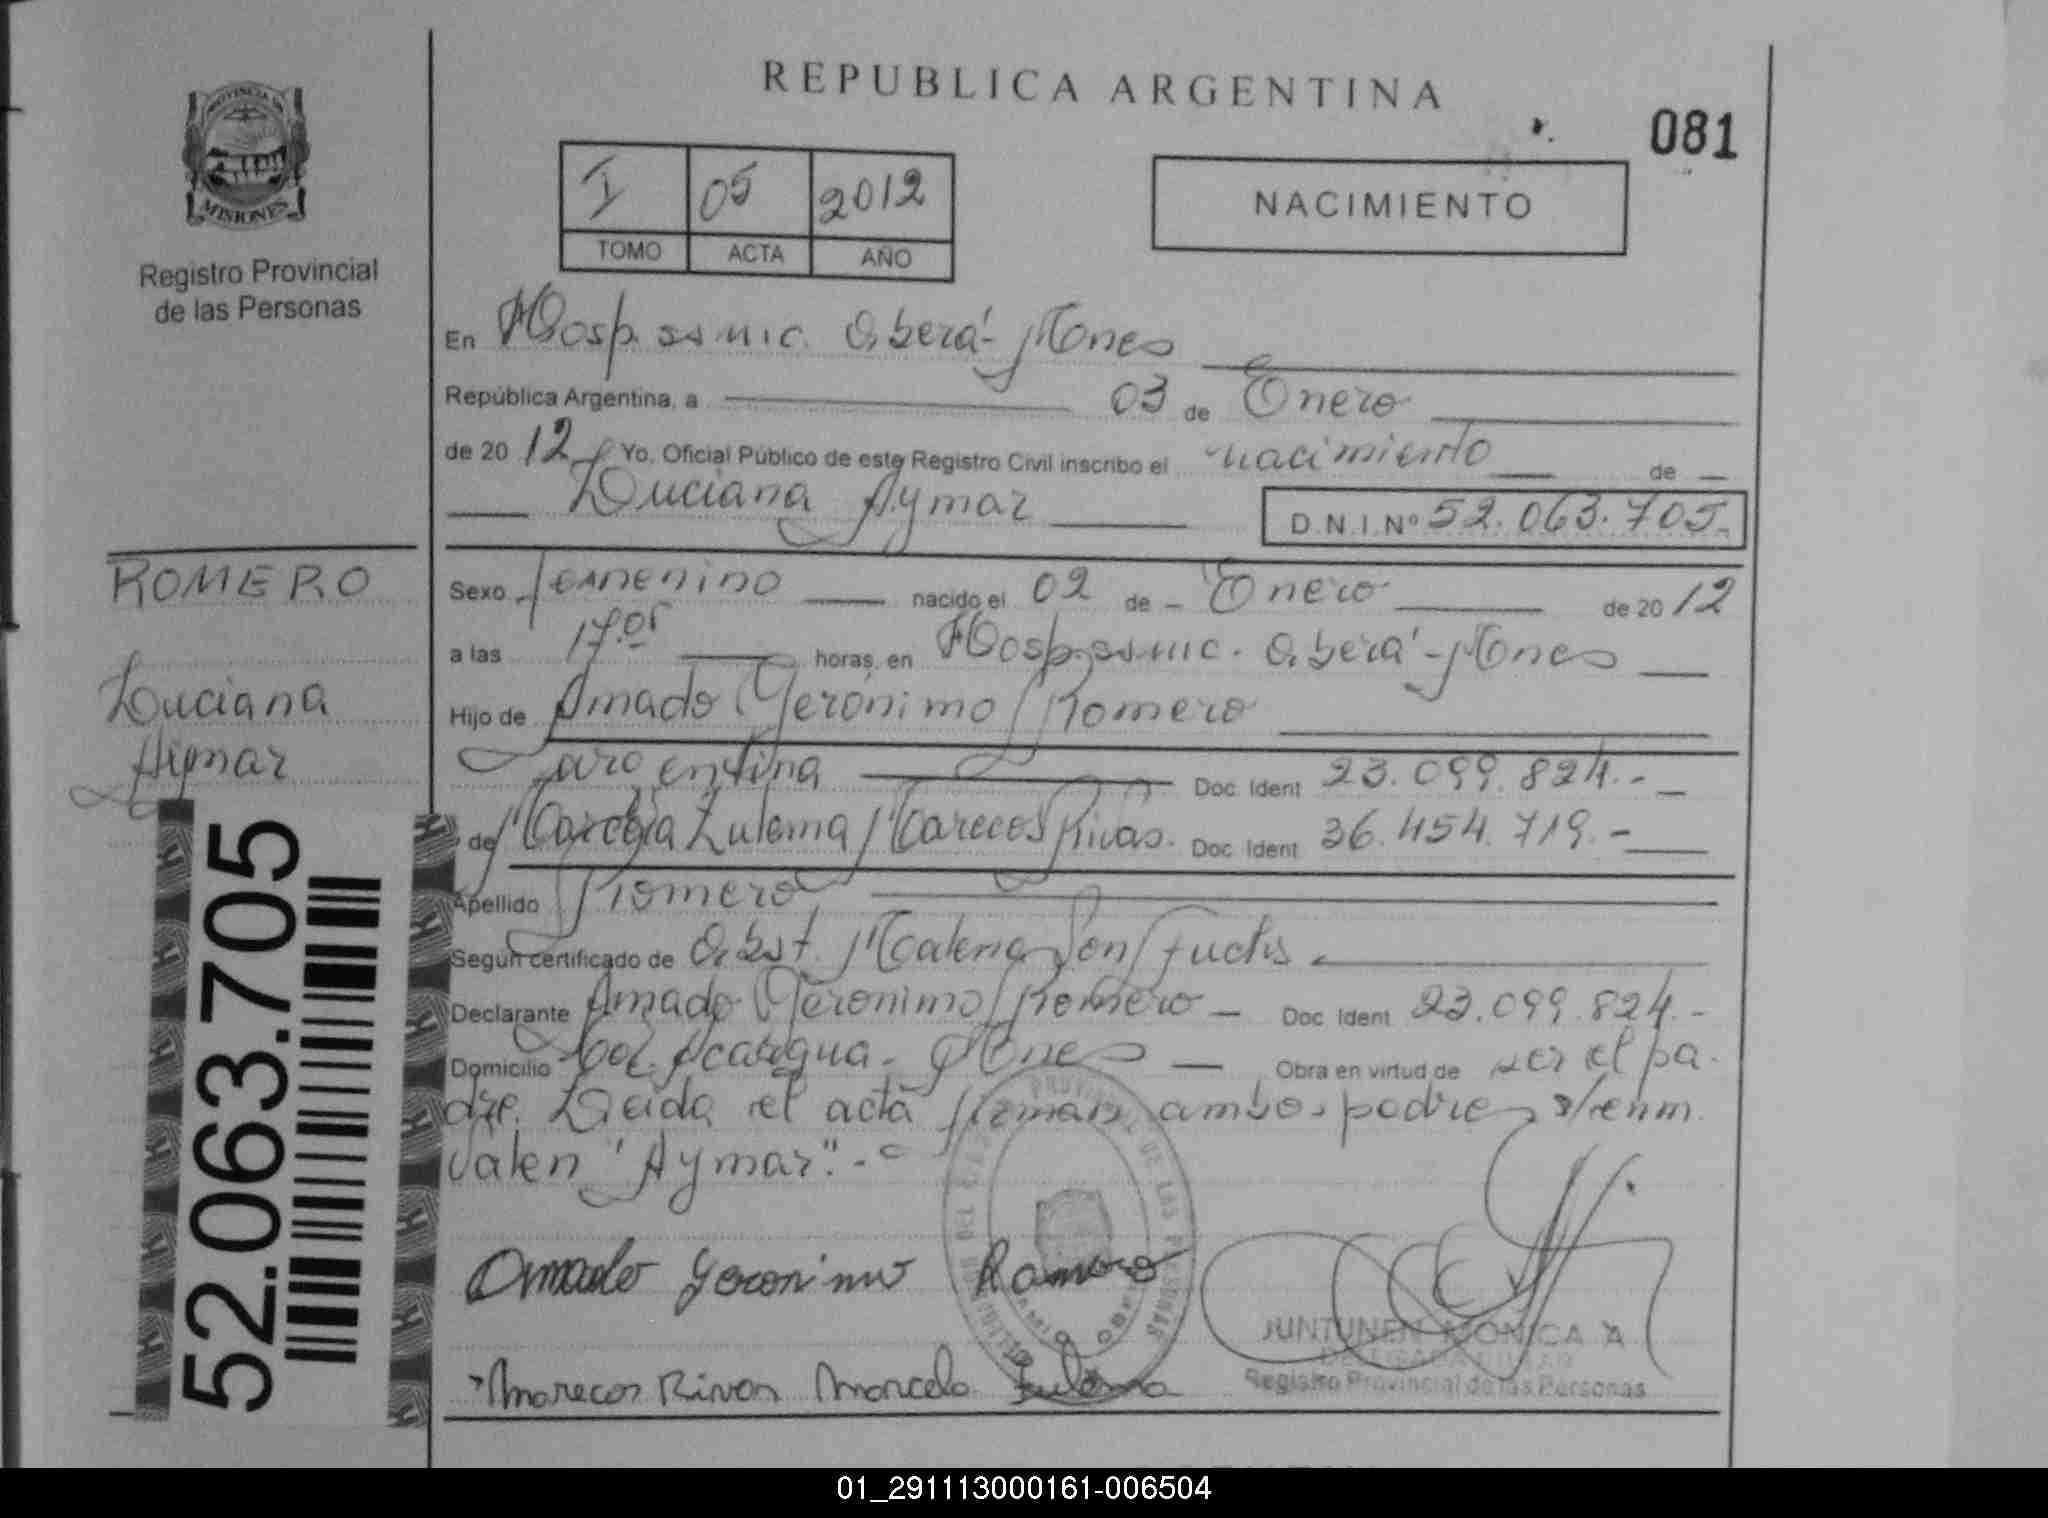 REPUBLICA ARGENTINA
081
PROVINCIA DE
MISIONES
Registro Provincial
de las Personas
I 05 2012
TOMO ACTA AÑO
NACIMIENTO
En Hosp. ssmic. Oberá - Mones
República Argentina, a 03 de Enero
de 20 12 Yo, Oficial Público de este Registro Civil inscribo el nacimiento de
Luciana Aymar D.N.I. Nº 52.063.705.-
ROMERO
Luciana
Aymar
52.063.705
Sexo femenino nacido el 02 de - Enero de 20 12
a las 17.05 horas, en Hosp. ssmic. Oberá - Mones
Hijo de Amado Gerónimo Romero
argentina Doc. Ident 23.099.824.-
de Marcela Zulema Marecos Rivas. Doc. Ident 36.454.719.-
Apellido Romero
Según certificado de Obst. Malena Von Fuchs.
Declarante Amado Geronimo Romero - Doc. Ident 23.099.824.-
Domicilio Col. Acaragua - Mones Obra en virtud de ser el pa-
dre. Leida el acta firman ambos padres s/enm.
Valen "Aymar".-
Amado Geronimo Romero
Marecos Rivas Marcela Zulema
JUNTUNEN MONICA A
DELEGADA TITULAR
Registro Provincial de las Personas
01_291113000161-006504